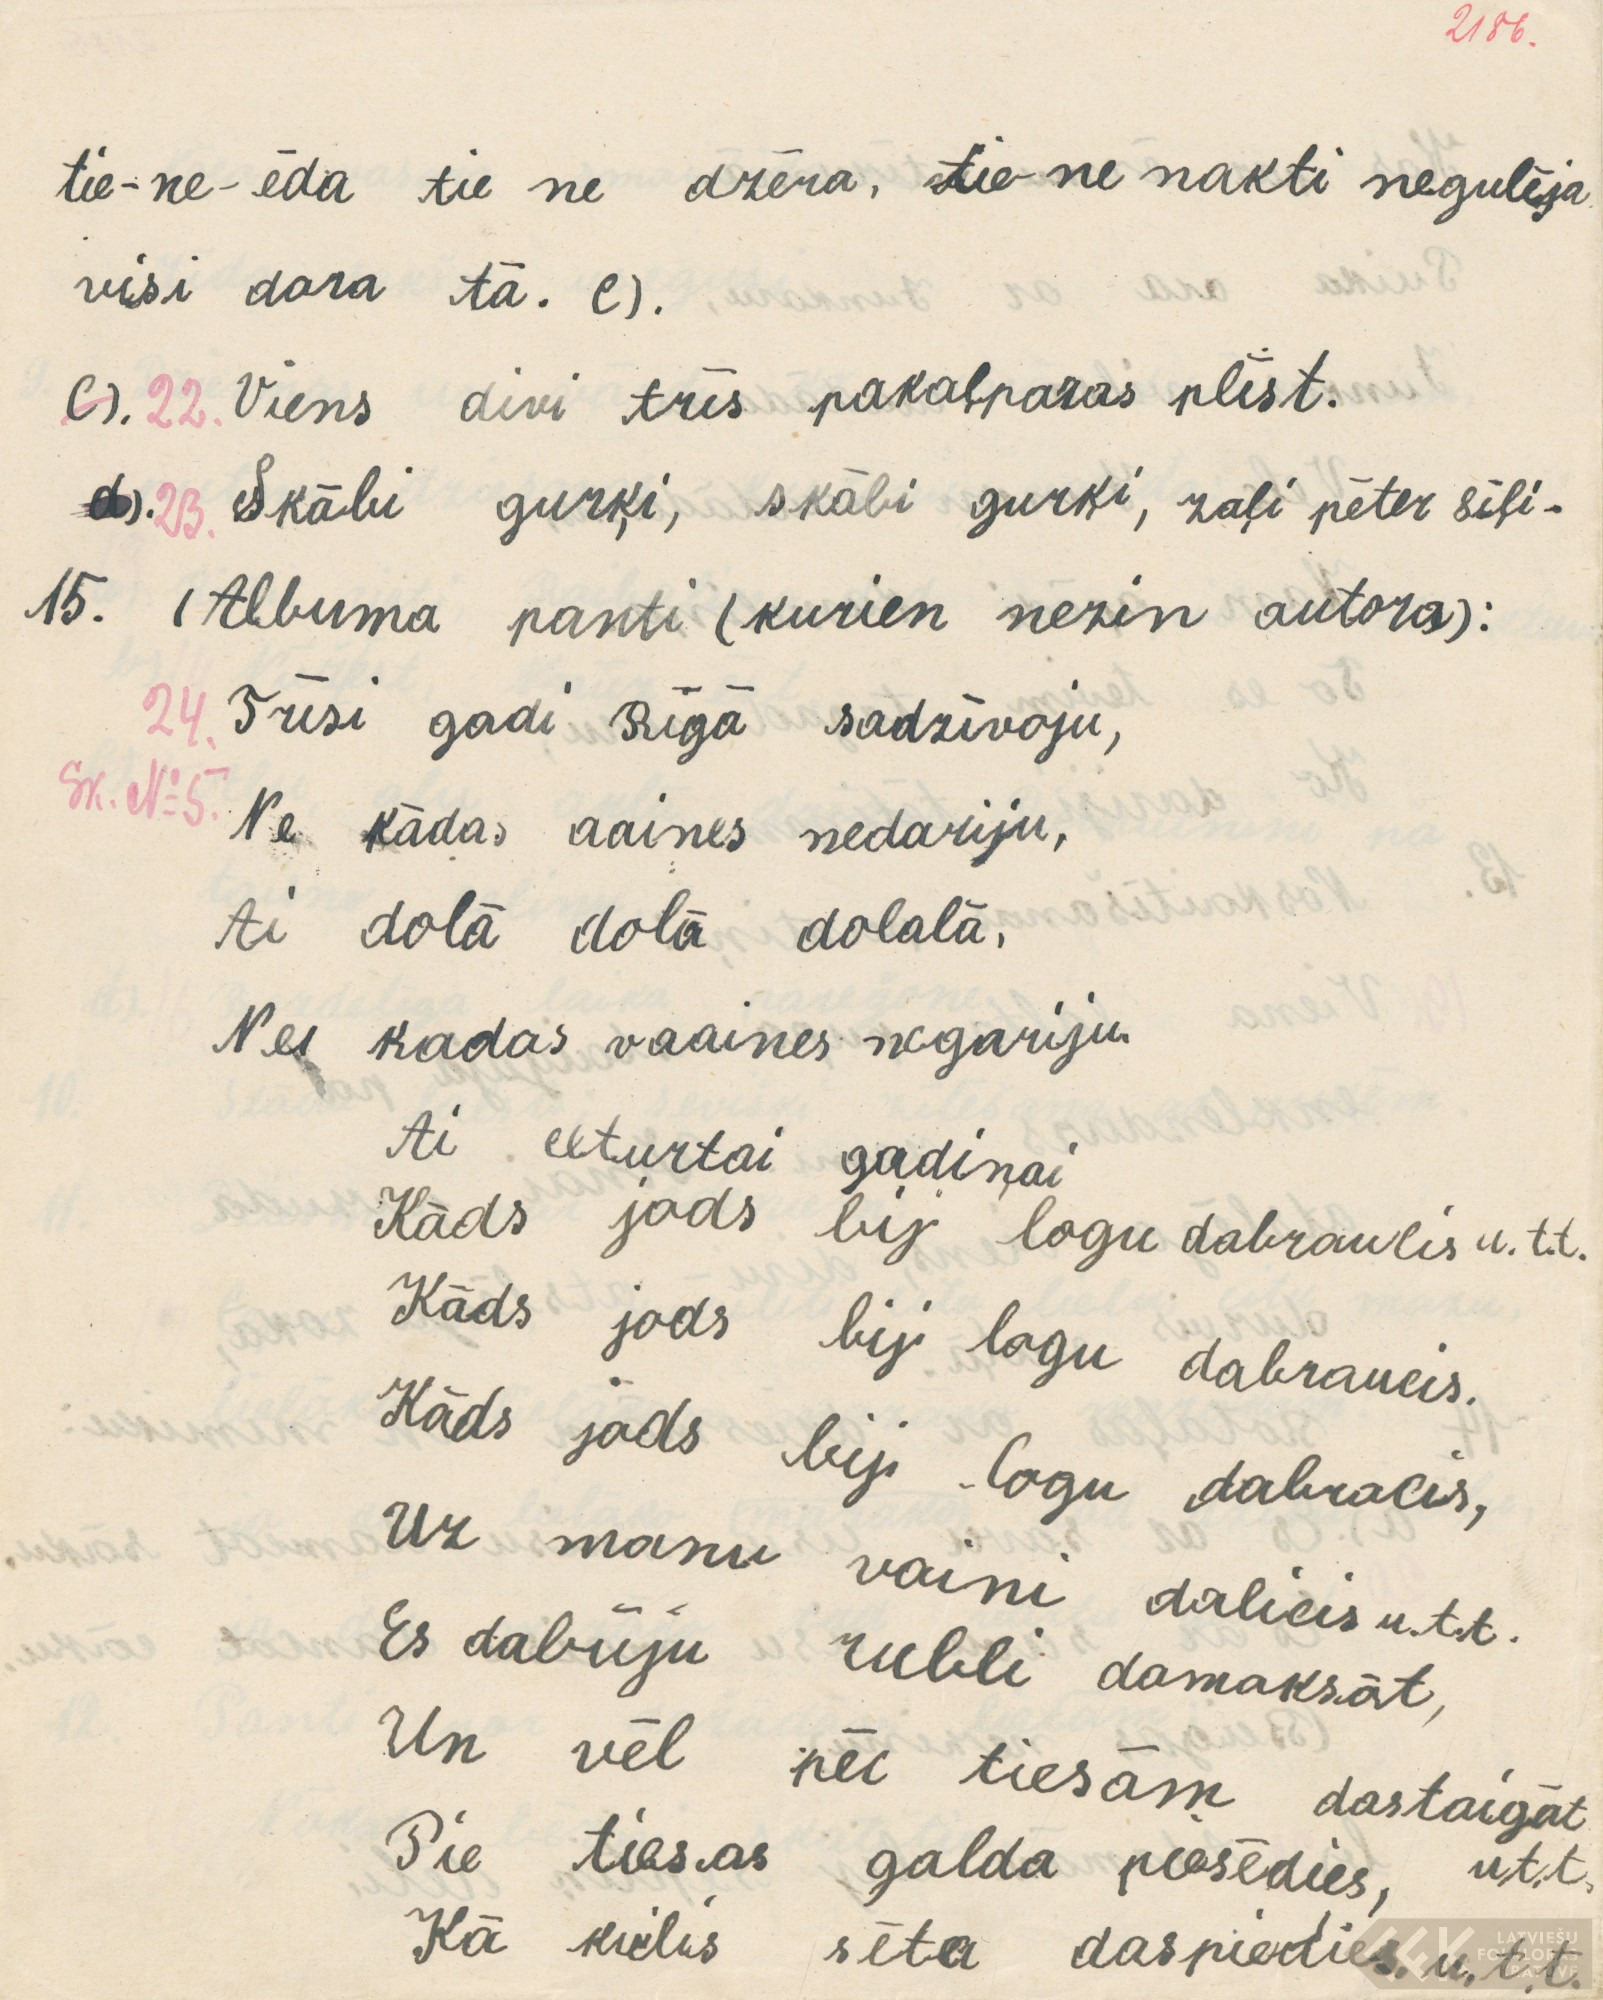 2186.
tie-ne-ēda tie ne dzēra, tie-ne nakti negulēja
visi dara tā. C).
C). 22. Viens divi trīs pakaļpazas plīst.
d). 23. Skābi gurķi, skābi gurķi, zaļi pēter sīļi.
15. (Albuma panti (kurien nezin autora):
24. Trīsi gadi Rīgā sadzīvoju,
Sk. № 5.
Ne kādas aaines nedariju,
Ai dolā dolā dolalā,
Nei kadas vaaines negariju.
Ai ceturtai gadiņai
Kāds jods bij logu dabraucis u.t.t.
Kāds jods bij logu dabraucis.
Kāds jods bij logu dabracis,
Uz manu vaini dalicis u.t.t.
Es dabūju rubli damaksāt,
Un vēl pēc tiesām dastaigāt
Pie tiesas galda piesēdies, u.t.t.
Kā ķielis sēta daspiedies. u.t.t.
LATVIEŠU
FOLKLORAS
KRĀTUVE